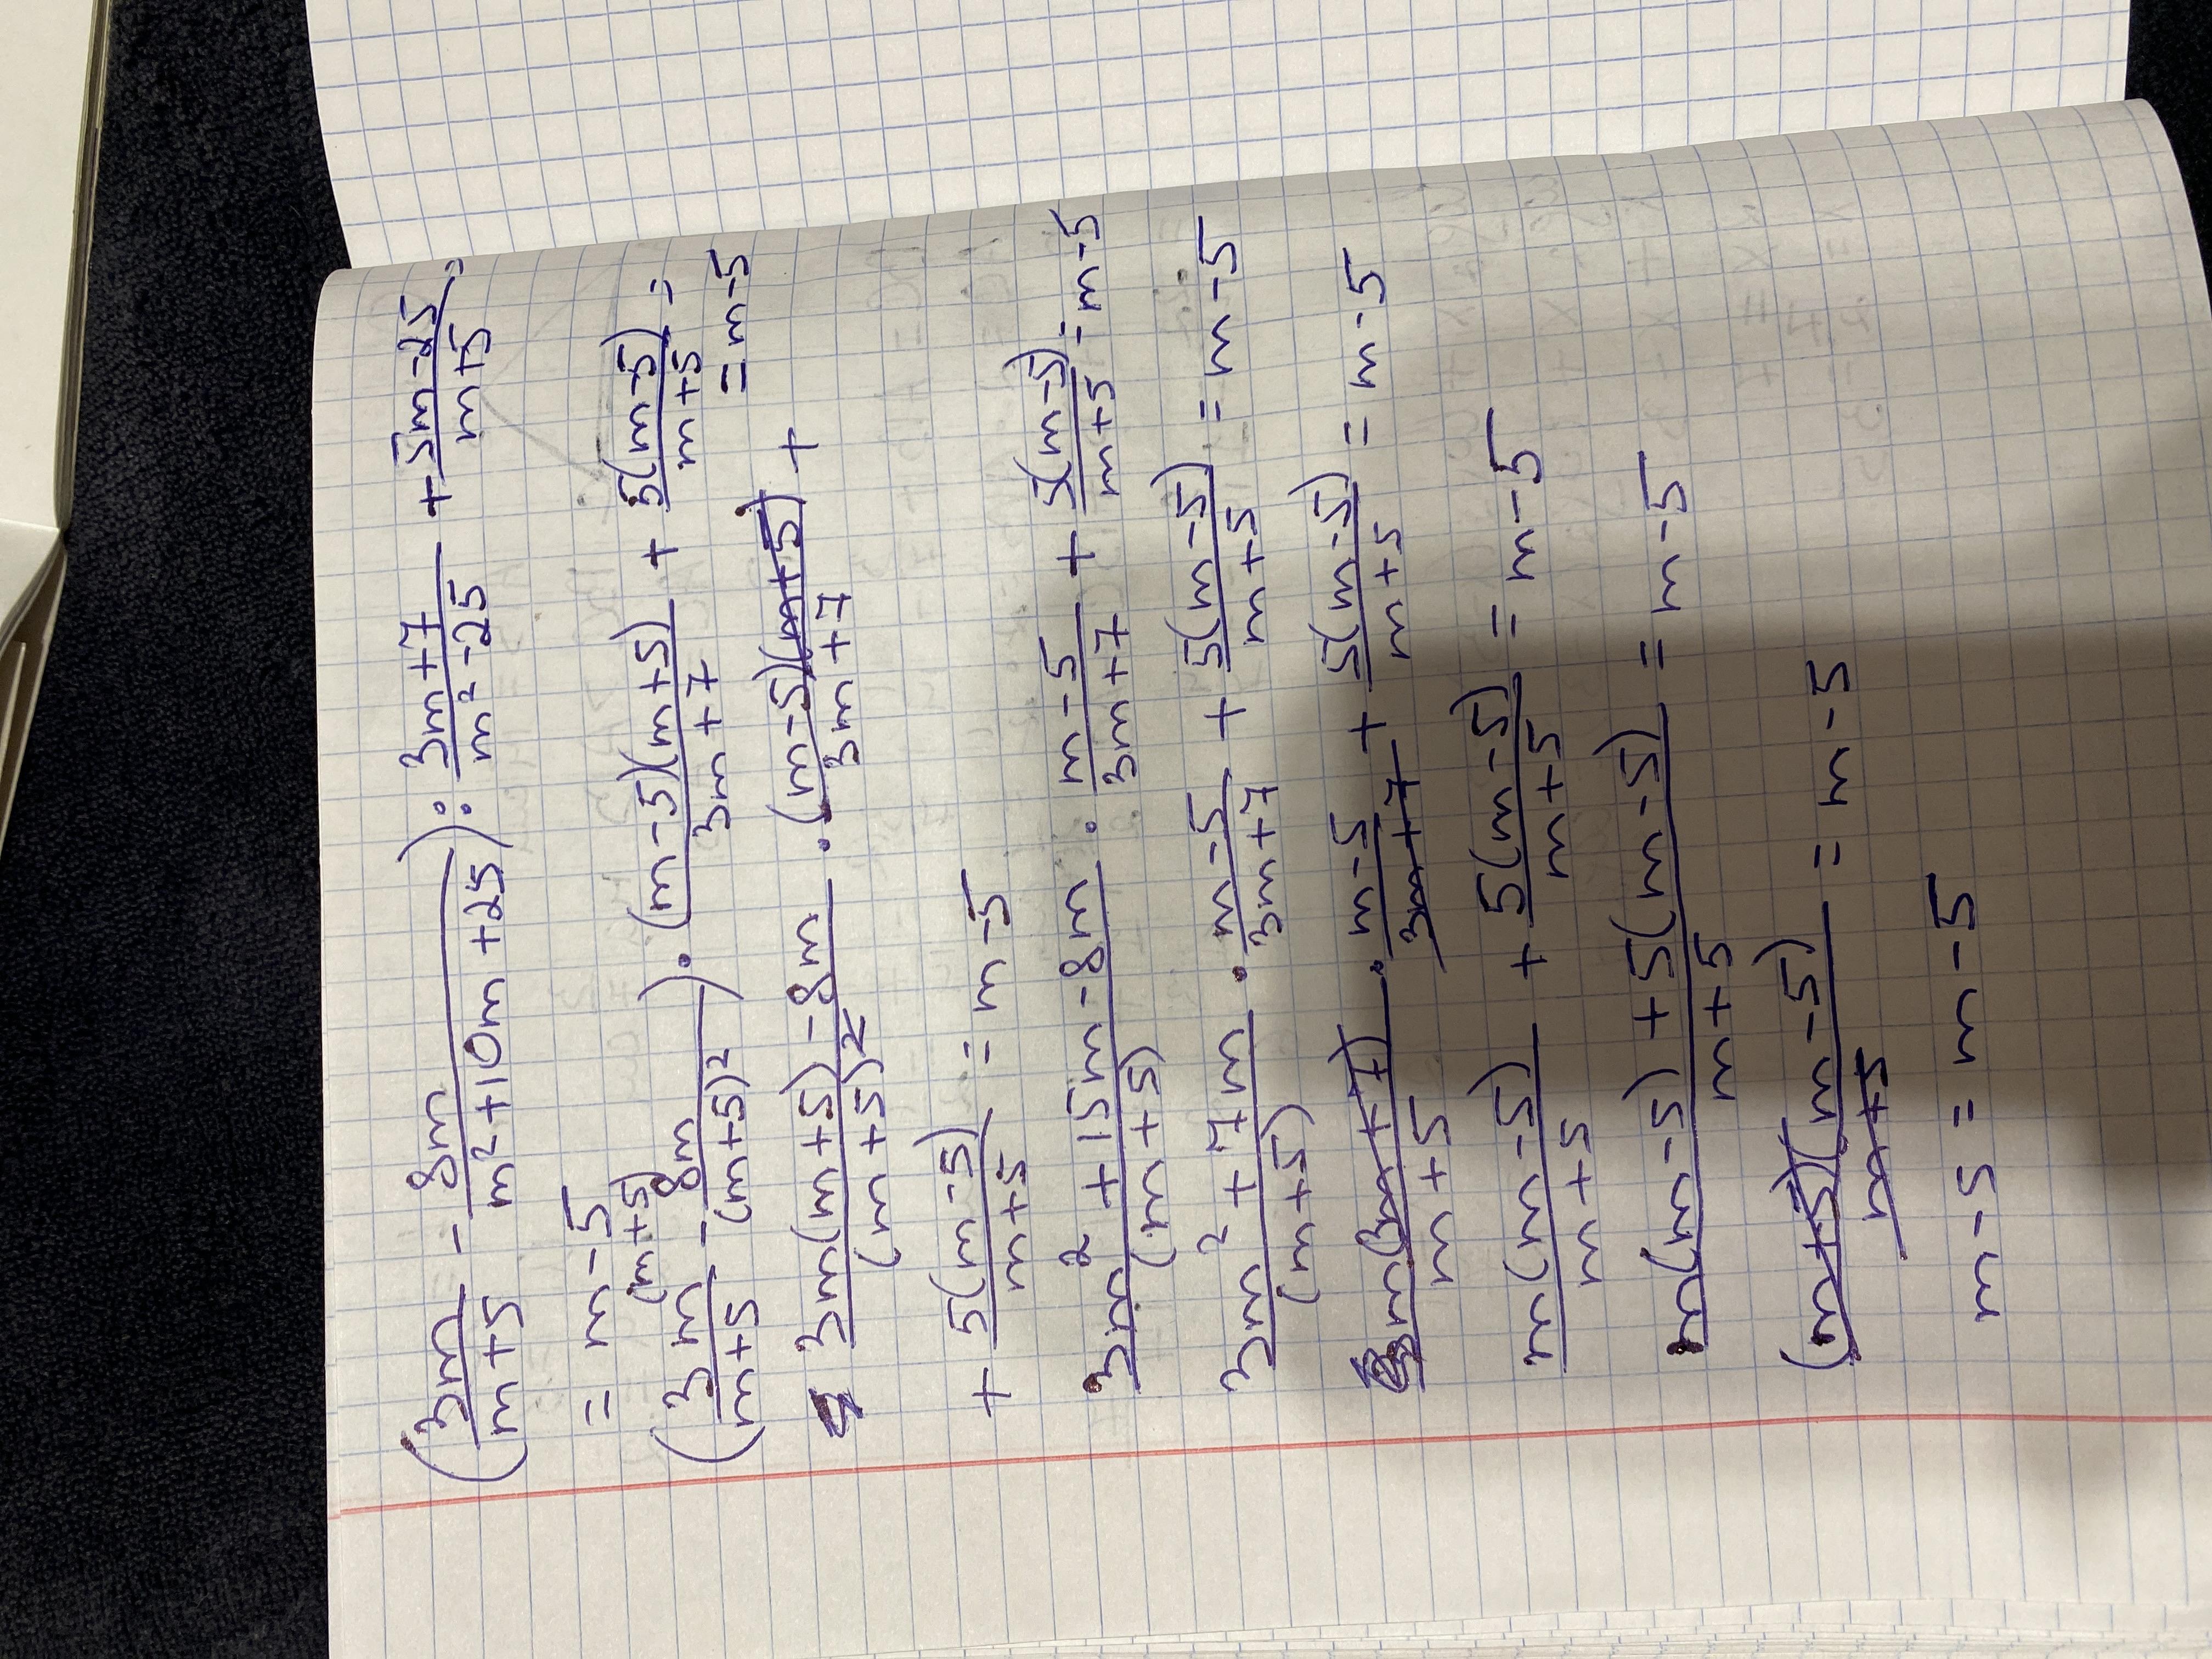 (3m/(m+5) - 8m/(m²+10m+25)) : (3m+7)/(m²-25) + (5m-25)/(m+5) =
= m-5
(3m/(m+5) (m+5) - 8m/(m+5)²) · (m-5)(m+5)/(3m+7) + 5(m-5)/(m+5) =
= m-5
(3m(m+5)-8m)/(m+5)² · (m-5)(m+5)/(3m+7) +
+ 5(m-5)/(m+5) = m-5
(3m²+15m-8m)/(m+5) · (m-5)/(3m+7) + 5(m-5)/(m+5) = m-5
(3m²+7m)/(m+5) · (m-5)/(3m+7) + 5(m-5)/(m+5) = m-5
m(3m+7)/(m+5) · (m-5)/(3m+7) + 5(m-5)/(m+5) = m-5
m(m-5)/(m+5) + 5(m-5)/(m+5) = m-5
(m(m-5)+5(m-5))/(m+5) = m-5
(m+5)(m-5)/(m+5) = m-5
m-5 = m-5